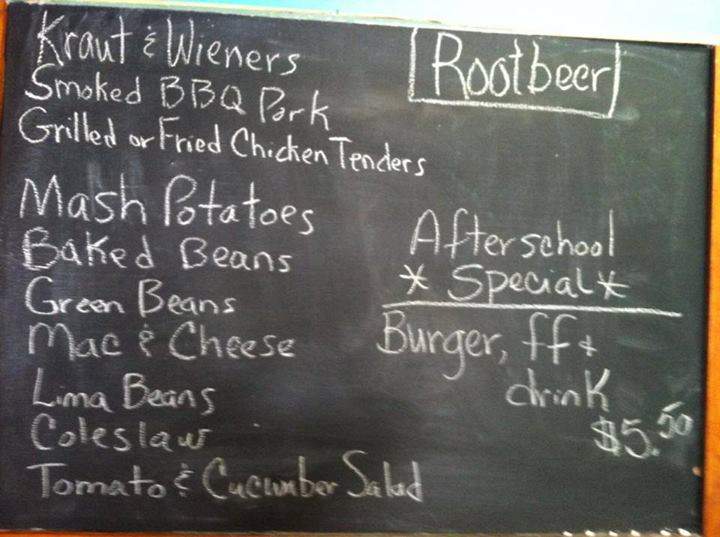 Kraut & Wieners
Smoked BBQ Pork
Grilled or Fried Chicken Tenders
Mash Potatoes
Baked Beans
Green Beans
Mac & Cheese
Lima Beans
Coleslaw
Tomato & Cucumber Salad
Rootbeer
Afterschool
* Special *
Burger, ff +
drink
$5.50